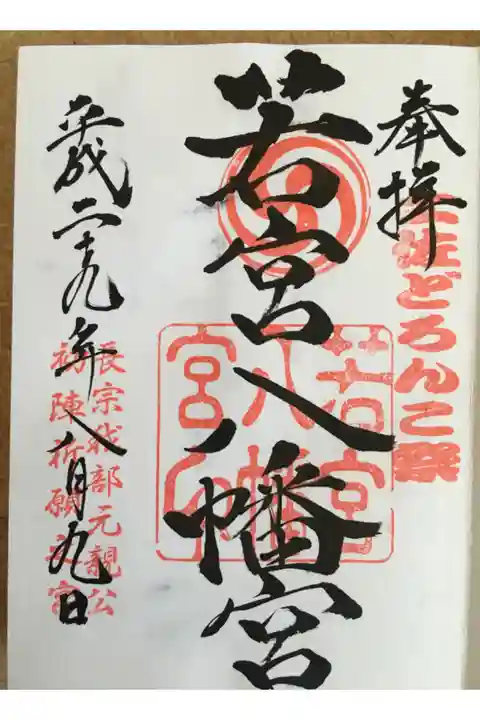 奉拝
土佐どろんこ祭
若宮八幡宮
若宮
八幡
宮
平成二十九年八月九日
長宗我部元親公
初陣祈願